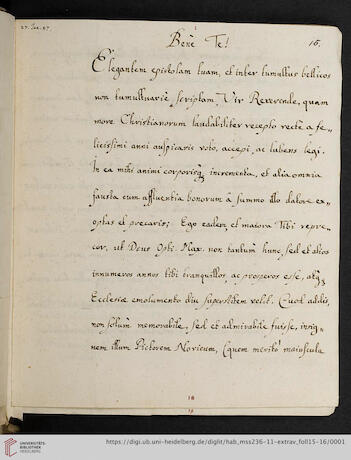 27. Jan. 87.
Benè Te!
16.
Elegantem epistolam tuam, et inter tumultus bellicos
non tumultuariè scriptam, Vir Reverende, quam
more Christianorum laudabiliter recepto rectè a fe-
licissimi anni auspicaris voto, accepi, ac lubens legi.
In ea mihi animi corporisq; incrementa, et alia omnia
fausta cum affluentia bonorum â summo illo datore ex-
optas et precaris: Ego eadem, et maiora Tibi repre-
cor, ut Deus Opt: Max. non tantùm hunc, sed et alios
innumeros annos tibi tranquillos, ac prosperos esse, atq;
Ecclesiæ emolumento diu superstitem velit. Quod addis,
non solùm memorabile, sed et admirabile fuisse, insig-
nem illum Pictorem Noricum, (quem meritò maiuscula
16
UNIVERSITÄTS-
BIBLIOTHEK
HEIDELBERG
https://digi.ub.uni-heidelberg.de/diglit/hab_mss236-11-extrav_foll15-16/0001